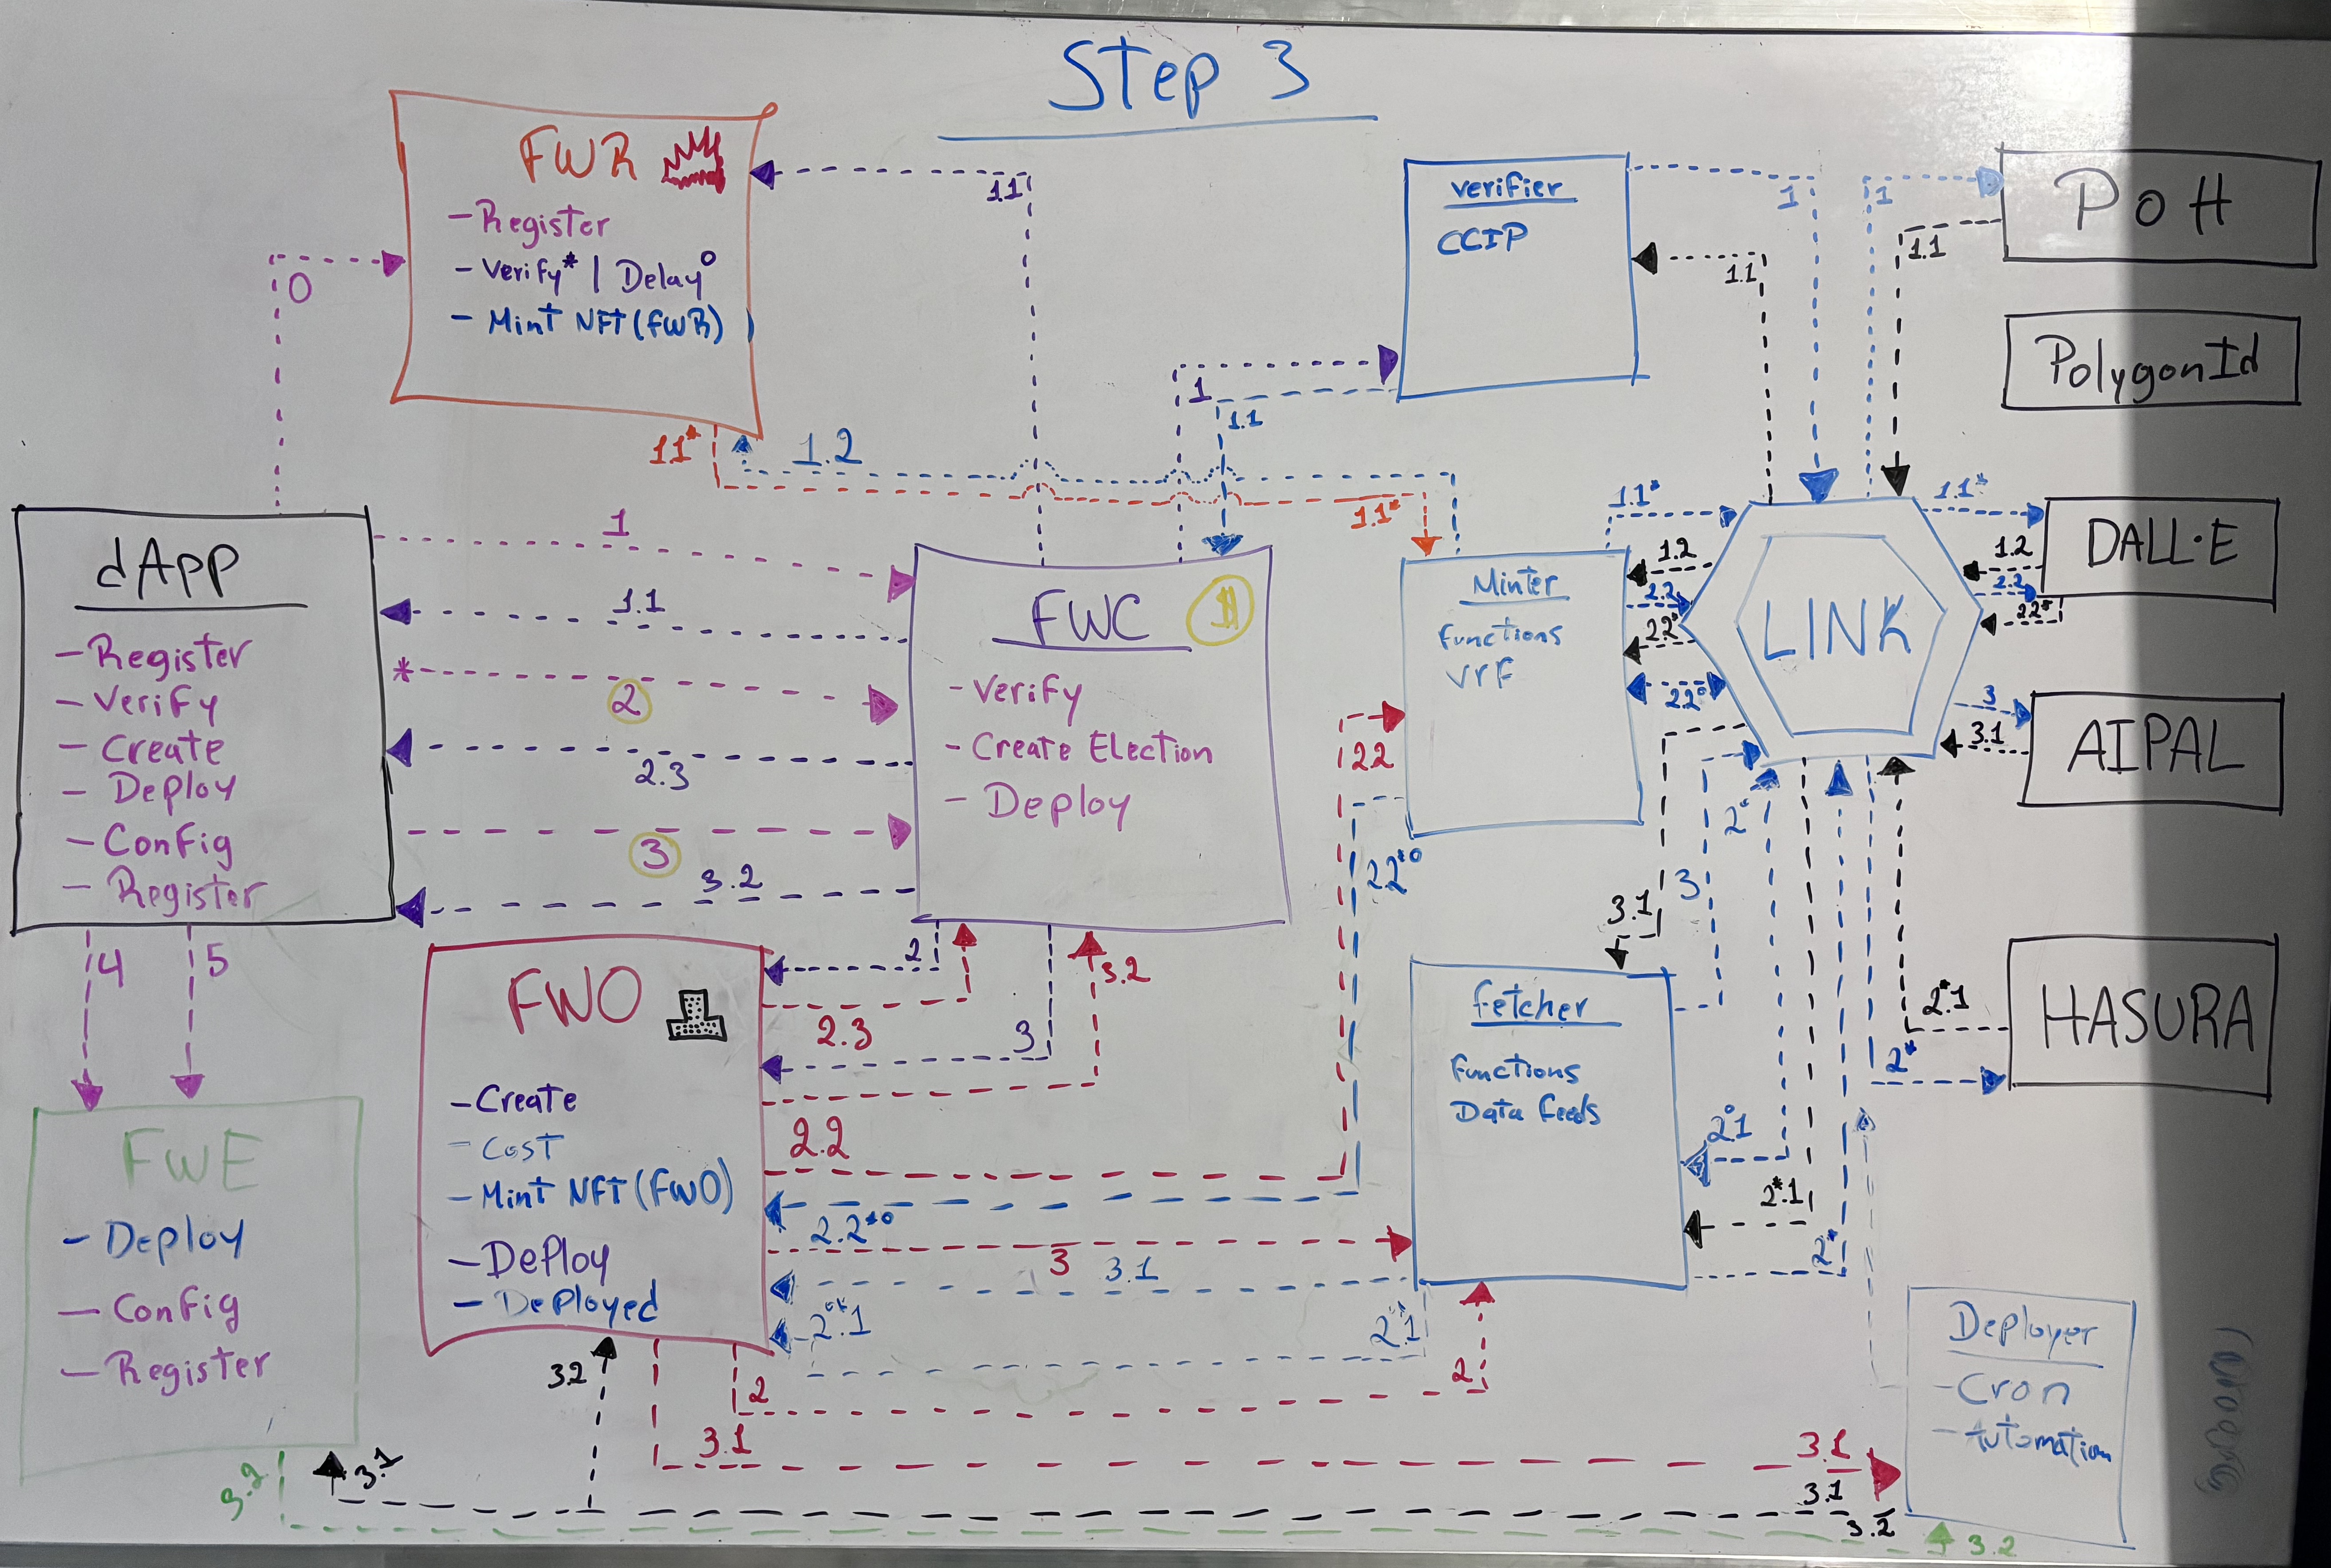 Step 3
FWR
- Register
- Verify* | Delay°
- Mint NFT (FWR)
0
1.1
verifier
CCIP
1
1
1.1
1.1
POH
PolygonId
1
1.1
11*
1.2
1.1*
dApp
- Register
- Verify
- Create
- Deploy
- Config
- Register
1
1.1
*
2
2.3
3
3.2
FWC
- Verify
- Create Election
- Deploy
Minter
Functions
VRF
1.1*
1.2
2.2
22*
22°
LINK
1.1*
1.2
2.2
22*
DALL·E
3
3.1
AIPAL
4
5
2
2.3
3
3.2
22
22*°
3.1
3
2°
FWO
- Create
- Cost
- Mint NFT (FWO)
- Deploy
- Deployed
2.2
2.2*°
3
3.1
2**.1
Fetcher
Functions
Data Feeds
2°1
2*.1
2*
2*.1
2*
HASURA
FWE
- Deploy
- Config
- Register
3.2
3.1
3.2
2
2
3.1
3.1
3.1
3.2
3.2
Deployer
- Cron
- Automation